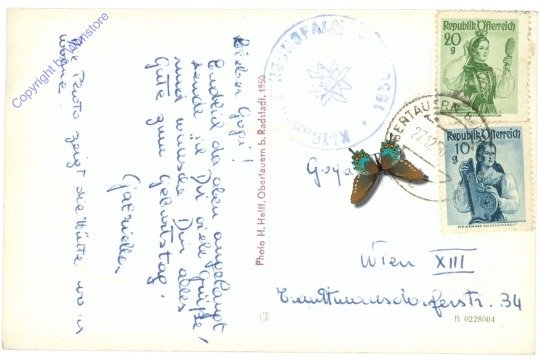 Copyright by Ansinstore
Lieber Gogi!
Endlich da oben angelangt
sende ich Dir viele Grüsse,
und wünsche Dir alles
Gute zum Geburtstag.
Gabrielle
Die zeigt die Hütte wo ich
wohne!
Photo H. Helff, Obertauern b. Radstadt, 1950
1650
OBERTAUERN
27.12
Republik Österreich
20
g
Republik Österreich
10
g
Wien XIII
34
B 0228604